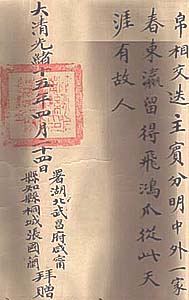 帛相交迭主賓分明中外一家
春東瀛留得飛鴻爪從此天
涯有故人
大清光緒十五年四月二十四日
署湖北武昌府咸甯
縣知縣桐城張國蘭
拜贈